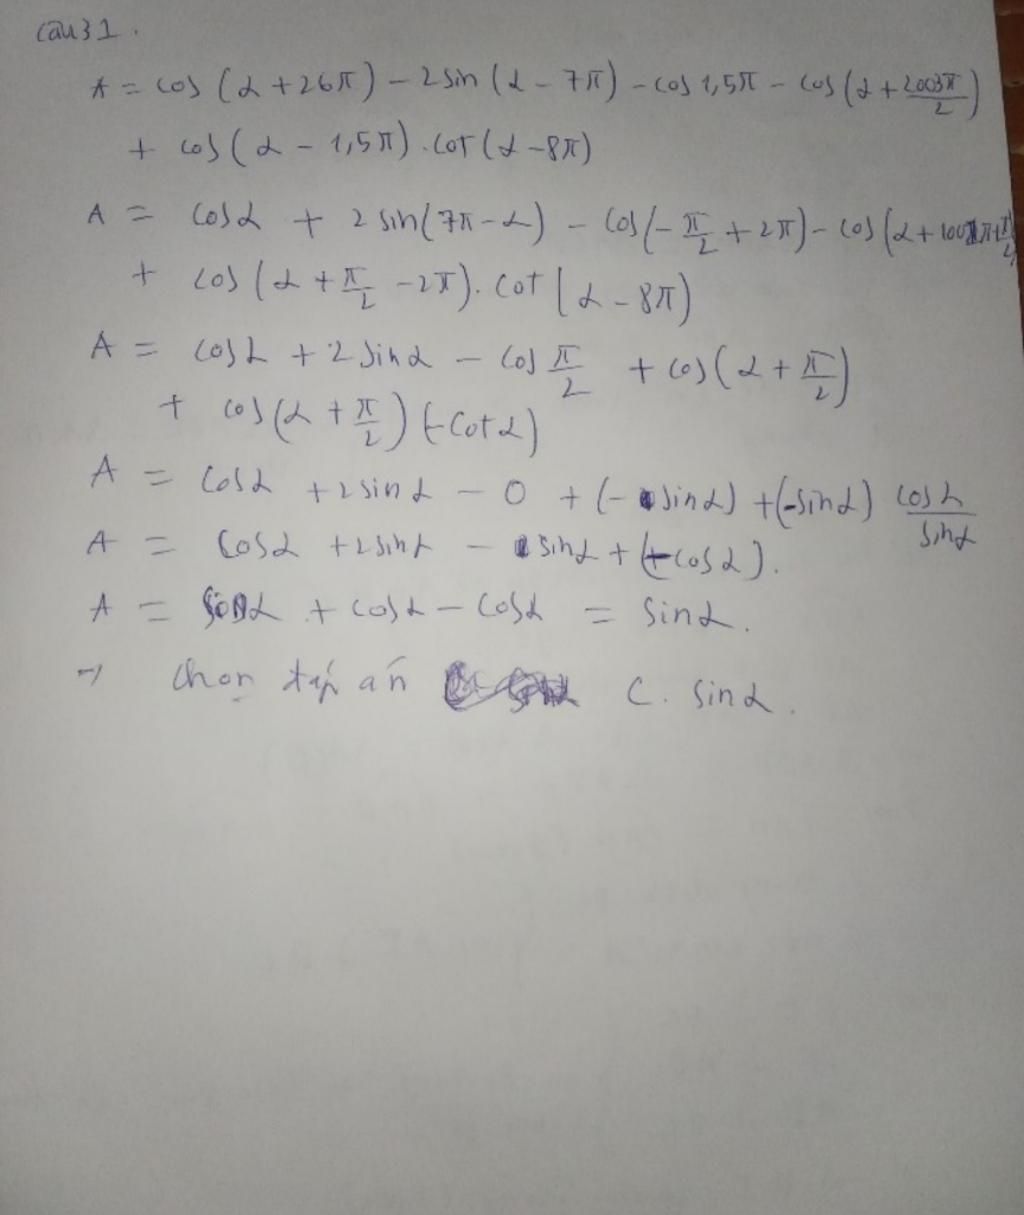 Câu 31.
A = cos (α + 26π) - 2 sin (α - 7π) - cos 1,5π - cos (α + 2003π/2)
+ cos (α - 1,5π) . cot (α - 8π)
A = cosα + 2 sin (7π - α) - cos (-π/2 + 2π) - cos (α + 1001π + π/2)
+ cos (α + π/2 - 2π). cot (α - 8π)
A = cosα + 2 sinα - cos π/2 + cos (α + π/2)
+ cos (α + π/2) (-cotα)
A = cosα + 2 sinα - 0 + (-sinα) + (-sinα) cosα/sinα
A = cosα + 2 sinα - sinα + (-cosα).
A = sinα + cosα - cosα = sinα.
→ chọn đáp án C. sinα.